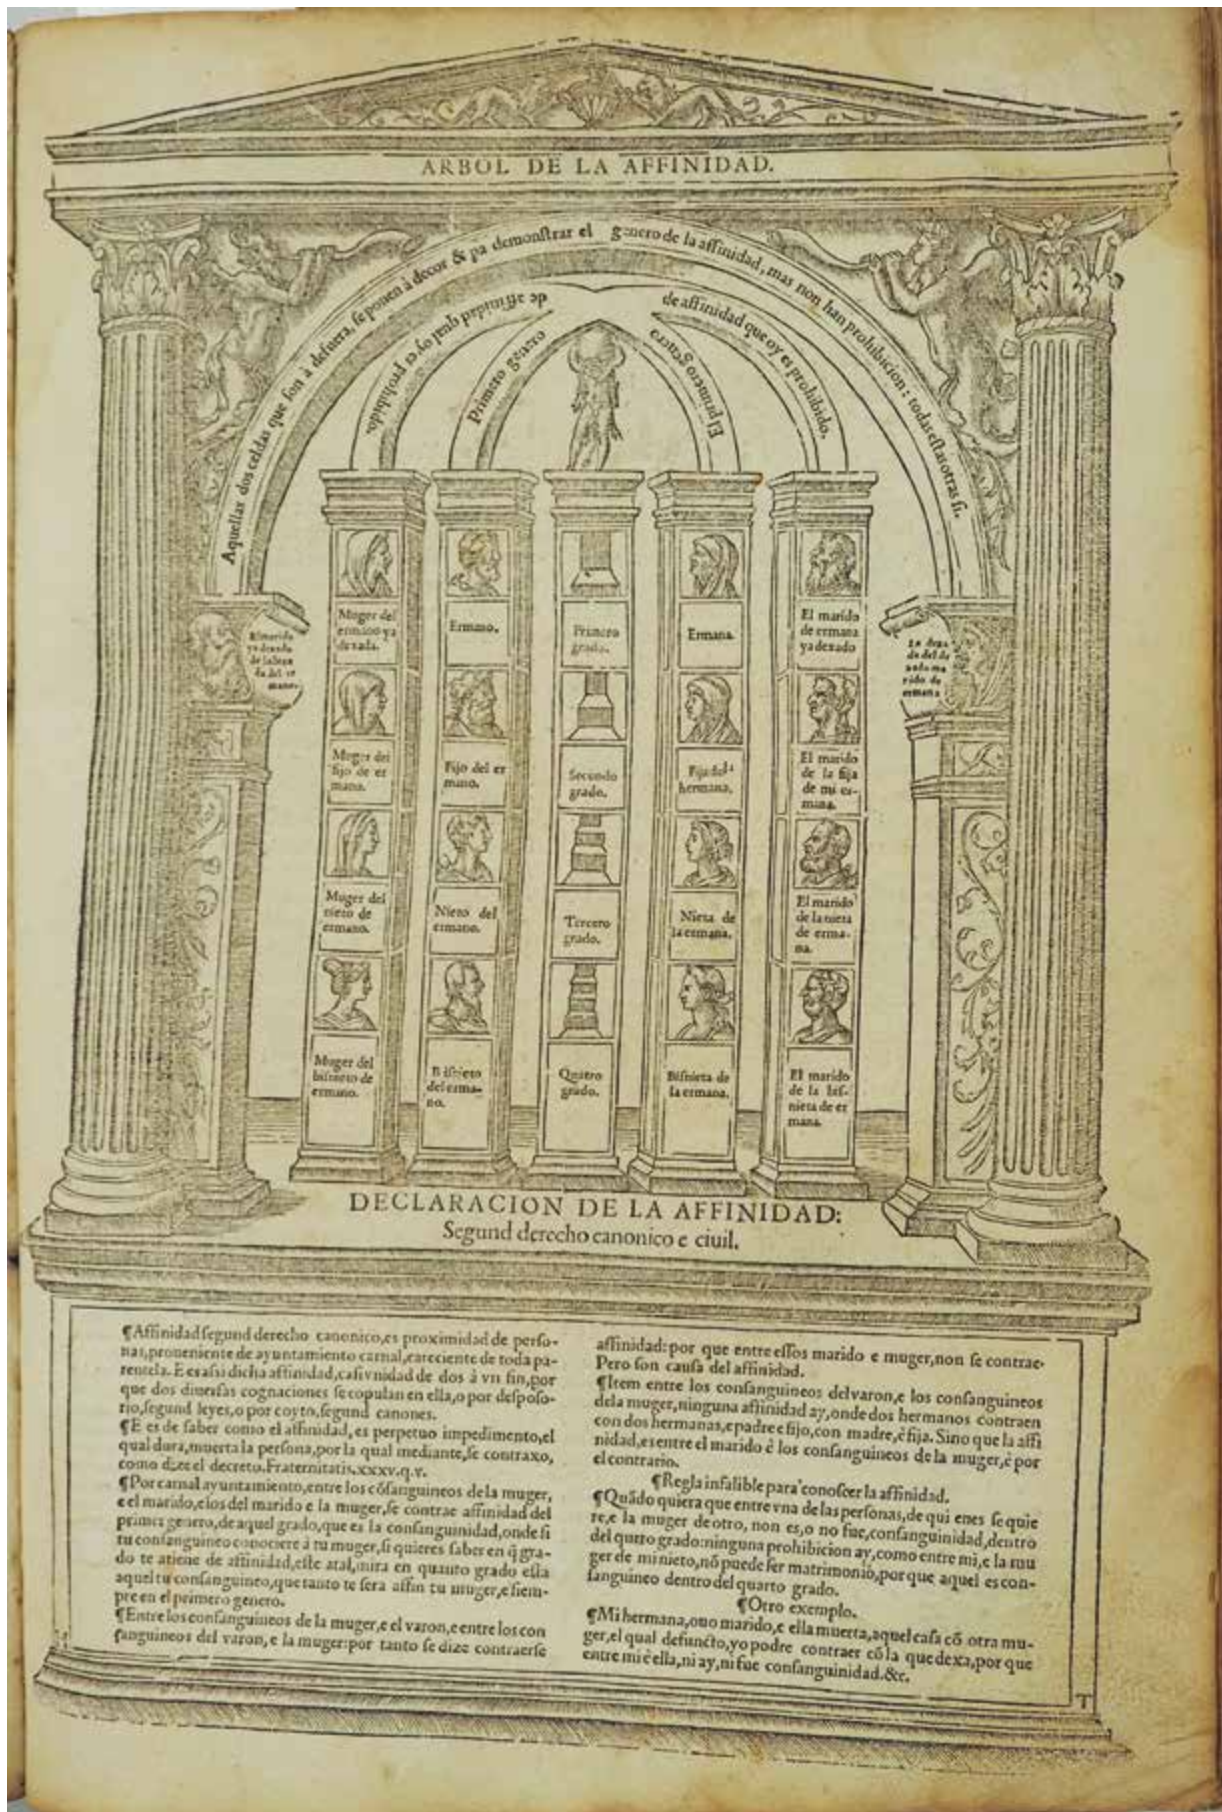 ARBOL DE LA AFFINIDAD.
Aquellas dos celdas que son à defuera, se ponen à decor & pa demonstrar el genero de la affinidad, mas non han prohibicion: todas estas otras si.
de affinidad que oy es prohibido.
de affinidad que oy es prohibido.
Primero genero
El primero genero
Muger del
ermano ya
dexada.
Ermano.
Primero
grado.
Ermana.
El marido
de ermana
ya dexado
El marido
ya dexado
de la dexa
da del er
mano.
La dexa
da del de
xado ma
rido de
ermana
Muger del
fijo de er
mano.
Fijo del er
mano.
Secondo
grado.
Fija de la
hermana.
El marido
de la fija
de mi er-
mana.
Muger del
nieto de
ermano.
Nieto del
ermano.
Tercero
grado.
Nieta de
la ermana.
El marido
de la nieta
de erma-
na.
Muger del
bisnieto de
ermano.
Bisnieto
del erma-
no.
Quatro
grado.
Bisnieta de
la ermana.
El marido
de la bis-
nieta de er
mana.
DECLARACION DE LA AFFINIDAD:
Segund derecho canonico e ciuil.
¶Affinidad segund derecho canonico, es proximidad de perso-
nas, proueniente de ayuntamiento carnal, careciente de toda pa-
rentela. E es assi dicha affinidad, casi vnidad de dos à vn fin, por
que dos diuersas cognaciones se copulan en ella, o por desposo-
rio, segund leyes, o por coyto, segund canones.
¶E es de saber como el affinidad, es perpetuo impedimento, el
qual dura, muerta la persona, por la qual mediante, se contraxo,
como dize el decreto. Fraternitatis. xxxv. q. v.
¶Por carnal ayuntamiento, entre los cōsanguineos de la muger,
e el marido, e los del marido e la muger, se contrae affinidad del
primer genero, de aquel grado, que es la consanguinidad, onde si
tu consanguineo conociere à tu muger, si quieres saber en q̄ gra-
do te atiene de affinidad, este atal, mira en quanto grado esta
aquel tu consanguineo, que tanto te sera affin tu muger, e siem-
pre en el primero genero.
¶Entre los consanguineos de la muger, e el varon, e entre los con
sanguineos del varon, e la muger: por tanto se dize contraerse
affinidad: por que entre essos marido e muger, non se contrae.
Pero son causa del affinidad.
¶Item entre los consanguineos del varon, e los consanguineos
dela muger, ninguna affinidad ay, onde dos hermanos contraen
con dos hermanas, e padre e fijo, con madre, è fija. Sino que la affi
nidad, es entre el marido è los consanguineos de la muger, è por
el contrario.
¶Regla infalible para conoscer la affinidad.
¶Quādo quiera que entre vna de las personas, de qui enes se quie
re, e la muger de otro, non es, o no fue, consanguinidad, dentro
del qurto grado: ninguna prohibicion ay, como entre mi, e la mu
ger de mi nieto, nō puede ser matrimonio, por que aquel es con-
sanguineo dentro del quarto grado.
¶Otro exemplo.
¶Mi hermana, ouo marido, e ella muerta, aquel casa cō otra mu-
ger, el qual defuncto, yo podre contraer cō la que dexa, por que
entre mi è ella, ni ay, ni fue consanguinidad. &c.
T